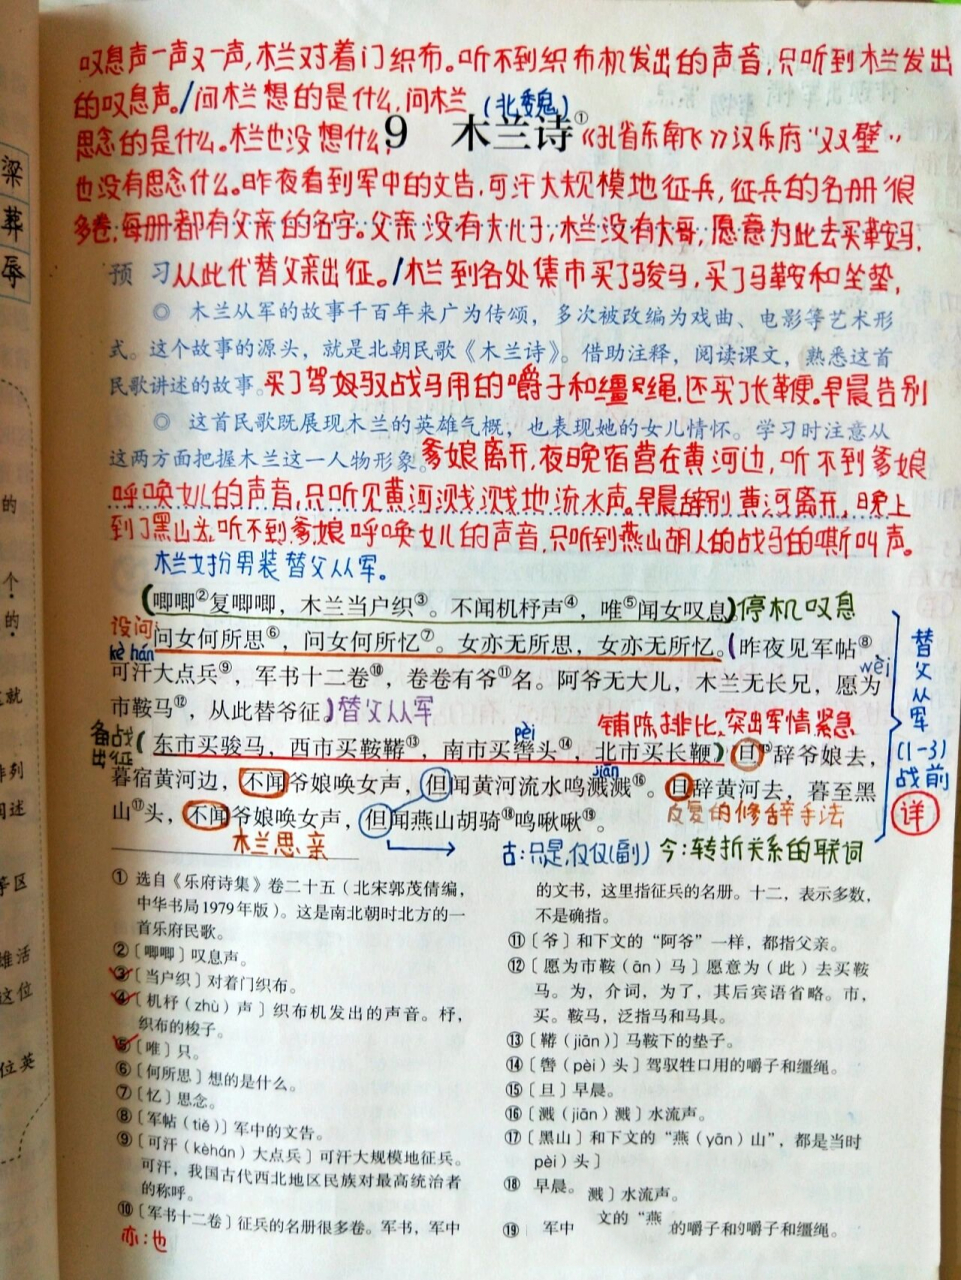 叹息声一声又一声,木兰对着门织布。听不到织布机发出的声音,只听到木兰发出
的叹息声。/问木兰想的是什么,问木兰
(北魏)
思念的是什么。木兰也没想什么,
9 木兰诗①
《孔雀东南飞》汉乐府“双璧”
也没有思念什么。昨夜看到军中的文告,可汗大规模地征兵,征兵的名册很
多卷,每册都有父亲的名字。父亲没有大儿子,木兰没有大哥,愿意为此去买鞍马,
预 习
从此代替父亲出征。/木兰到各处集市买了骏马,买了马鞍和坐垫,
◎ 木兰从军的故事千百年来广为传颂,多次被改编为戏曲、电影等艺术形
式。这个故事的源头,就是北朝民歌《木兰诗》。借助注释,阅读课文,熟悉这首
民歌讲述的故事。
买了驾驭战马用的嚼子和缰绳,还买了长鞭。早晨告别
◎ 这首民歌既展现木兰的英雄气概,也表现她的女儿情怀。学习时注意从
这两方面把握木兰这一人物形象。
爹娘离开,夜晚宿营在黄河边,听不到爹娘
呼唤女儿的声音,只听见黄河溅溅地流水声。早晨辞别黄河离开,晚上
到了黑山头,听不到爹娘呼唤女儿的声音,只听到燕山胡人的战马的嘶叫声。
木兰女扮男装替父从军。
(唧唧②复唧唧,木兰当户织③。不闻机杼声④,唯⑤闻女叹息)停机叹息
设问
问女何所思⑥,问女何所忆⑦。女亦无所思,女亦无所忆。(昨夜见军帖⑧,
kè hán
wèi
可汗大点兵⑨,军书十二卷⑩,卷卷有爷⑪名。阿爷无大儿,木兰无长兄,愿为
市鞍马⑫,从此替爷征。)替父从军
铺陈,排比,突出军情紧急
备战
出征
pèi
(东市买骏马,西市买鞍鞯⑬,南市买辔头⑭,北市买长鞭)旦⑮辞爷娘去,
jiān
暮宿黄河边,不闻爷娘唤女声,但闻黄河流水鸣溅溅⑯。旦辞黄河去,暮至黑
山⑰头,不闻爷娘唤女声,但闻燕山胡骑⑱鸣啾啾⑲。
反复的修辞手法
木兰思亲
古:只是,仅仅(副) 今:转折关系的联词
替父从军
(1-3)
战前
详
① 选自《乐府诗集》卷二十五(北宋郭茂倩编,
中华书局1979年版)。这是南北朝时北方的一
首乐府民歌。
②〔唧唧〕叹息声。
③〔当户织〕对着门织布。
④〔机杼(zhù)声〕织布机发出的声音。杼,
织布的梭子。
⑤〔唯〕只。
⑥〔何所思〕想的是什么。
⑦〔忆〕思念。
⑧〔军帖(tiě)〕军中的文告。
⑨〔可汗(kèhán)大点兵〕可汗大规模地征兵。
可汗,我国古代西北地区民族对最高统治者
的称呼。
⑩〔军书十二卷〕征兵的名册很多卷。军书,军中
亦:也
的文书,这里指征兵的名册。十二,表示多数,
不是确指。
⑪〔爷〕和下文的“阿爷”一样,都指父亲。
⑫〔愿为市鞍(ān)马〕愿意为(此)去买鞍
马。为,介词,为了,其后宾语省略。市,
买。鞍马,泛指马和马具。
⑬〔鞯(jiān)〕马鞍下的垫子。
⑭〔辔(pèi)头〕驾驭牲口用的嚼子和缰绳。
⑮〔旦〕早晨。
⑯〔溅(jiān)溅〕水流声。
⑰〔黑山〕和下文的“燕(yān)山”,都是当时
pèi)头〕
⑱ 早晨。
溅〕水流声。
文的“燕
⑲ 军中
的嚼子和的嚼子和缰绳。
梁
葬
辱
的
个
的
就
排列
阐述
等区
雄活
这位
位英